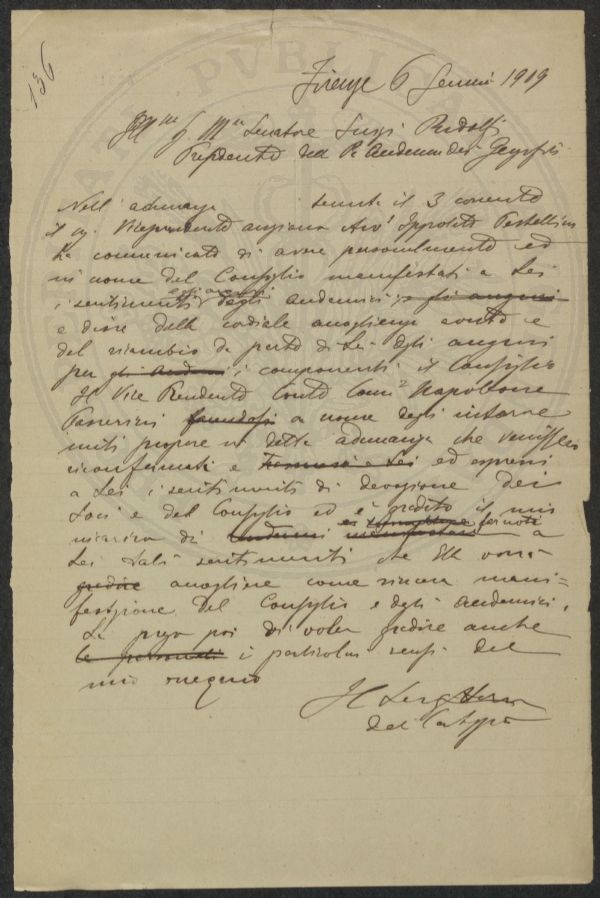 136
Firenze 6 Gennaio 1919
Ill.mo S. M.se Senatore Luigi Ridolfi
Presidente della R. Accademia dei Georgofili
Nell' adunanza tenuta il 3 corrente
il Vicepresidente anziano Avv. Ippolito Pestellini
ha comunicato di avere personalmente ed
in nome del Consiglio manifestati a Lei
i sentimenti degli Accademici
e disse della cordiale accoglienza avuta e
del ricambio da parte di Lei degli auguri
per gli i componenti il Consiglio
Il Vice Presidente Conte Comm. Napoleone
Passerini a nome degli
propose in detta adunanza che venissero
riconfermati e ed espressi
a Lei i sentimenti di devozione dei
Soci e del Consiglio ed è gradito il mio
incarico di far noti a
Lei tali sentimenti che Ella vorrà
gradire accogliere come sincera mani=
festazione del Consiglio e degli Accademici.
La prego poi di voler gradire anche
i particolari sensi del
mio ossequio
Il Seg